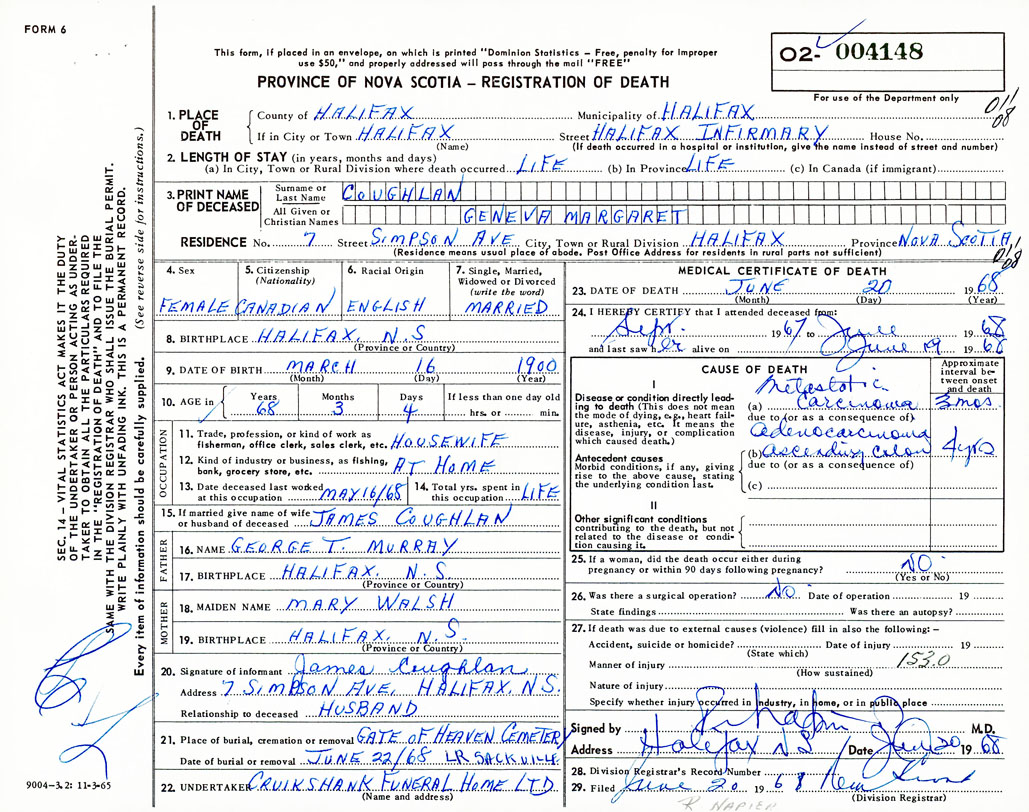 FORM 6
This form, if placed in an envelope, on which is printed "Dominion Statistics – Free, penalty for improper
use $50," and properly addressed will pass through the mail "FREE"
PROVINCE OF NOVA SCOTIA – REGISTRATION OF DEATH
02- 004148
For use of the Department only
011
08
1. PLACE OF DEATH
County of HALIFAX Municipality of HALIFAX
If in City or Town HALIFAX Street HALIFAX INFIRMARY House No.
(Name) (If death occurred in a hospital or institution, give the name instead of street and number)
2. LENGTH OF STAY (in years, months and days)
(a) In City, Town or Rural Division where death occurred LIFE (b) In Province LIFE (c) In Canada (if immigrant)
3. PRINT NAME OF DECEASED
Surname or Last Name COUGHLAN
All Given or Christian Names GENEVA MARGARET
RESIDENCE No. 7 Street SIMPSON AVE City, Town or Rural Division HALIFAX Province NOVA SCOTIA
(Residence means usual place of abode. Post Office Address for residents in rural parts not sufficient)
011
08
4. Sex FEMALE
5. Citizenship (Nationality) CANADIAN
6. Racial Origin ENGLISH
7. Single, Married, Widowed or Divorced (write the word) MARRIED
8. BIRTHPLACE HALIFAX, N.S
(Province or Country)
9. DATE OF BIRTH MARCH 16 1900
(Month) (Day) (Year)
10. AGE in Years 68 Months 3 Days 4 If less than one day old hrs. or min.
OCCUPATION
11. Trade, profession, or kind of work as
fisherman, office clerk, sales clerk, etc. HOUSEWIFE
12. Kind of industry or business, as fishing,
bank, grocery store, etc. AT HOME
13. Date deceased last worked
at this occupation MAY 16/68
14. Total yrs. spent in
this occupation LIFE
15. If married give name of wife
or husband of deceased JAMES COUGHLAN
FATHER
16. NAME GEORGE T. MURRAY
17. BIRTHPLACE HALIFAX. N.S.
(Province or Country)
MOTHER
18. MAIDEN NAME MARY WALSH
19. BIRTHPLACE HALIFAX. N.S.
(Province or Country)
20. Signature of informant James Coughlan
Address 7 SIMPSON AVE, HALIFAX, N.S.
Relationship to deceased HUSBAND
21. Place of burial, cremation or removal GATE OF HEAVEN CEMETERY
Date of burial or removal JUNE 22/68 LR SACKVILLE
22. UNDERTAKER CRUIKSHANK FUNERAL HOME LTD
(Name and address)
MEDICAL CERTIFICATE OF DEATH
23. DATE OF DEATH JUNE 20 1968
(Month) (Day) (Year)
24. I HEREBY CERTIFY that I attended deceased from:
Sept. 1967 to June 1968
and last saw her alive on June 19 1968
CAUSE OF DEATH
Approximate interval between onset and death
I
Disease or condition directly leading to death (This does not mean the mode of dying, e.g., heart failure, asthenia, etc. It means the disease, injury, or complication which caused death.)
Metastatic
(a) Carcinoma 3 mos
due to (or as a consequence of)
Adenocarcinoma
Antecedent causes
Morbid conditions, if any, giving rise to the above cause, stating the underlying condition last.
(b) ascending colon 4 yrs
due to (or as a consequence of)
(c)
II
Other significant conditions
contributing to the death, but not related to the disease or condition causing it.
25. If a woman, did the death occur either during
pregnancy or within 90 days following pregnancy? NO
(Yes or No)
26. Was there a surgical operation? NO Date of operation 19
State findings Was there an autopsy?
27. If death was due to external causes (violence) fill in also the following: –
Accident, suicide or homicide? Date of injury 19
(State which)
153.0
Manner of injury
(How sustained)
Nature of injury
Specify whether injury occurred in industry, in home, or in public place
Signed by M.D.
Address Halifax NS Date June 20 1968
28. Division Registrar's Record Number
29. Filed June 20 1968
(Division Registrar)
R NAPIER
SEC. 14 – VITAL STATISTICS ACT MAKES IT THE DUTY
OF THE UNDERTAKER OR PERSON ACTING AS UNDER-
TAKER TO OBTAIN ALL THE PARTICULARS REQUIRED
IN THE "REGISTRATION OF DEATH" AND TO FILE THE
SAME WITH THE DIVISION REGISTRAR WHO SHALL ISSUE THE BURIAL PERMIT.
WRITE PLAINLY WITH UNFADING INK. THIS IS A PERMANENT RECORD.
Every item of information should be carefully supplied. (See reverse side for instructions.)
9004-3.2: 11-3-65